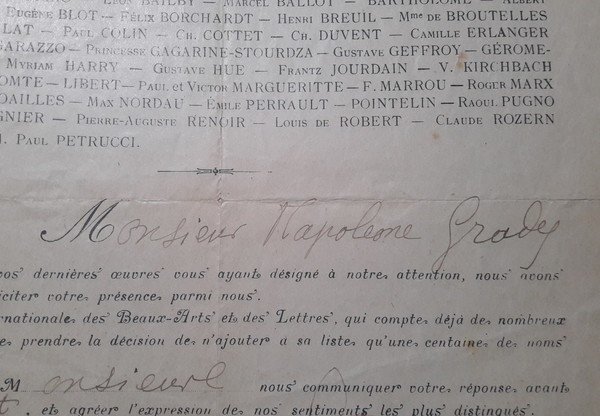 LÉON BAILBY — MARCEL BALLOT — BARTHOLOMÉ — ALBERT
EUGÈNE BLOT — FÉLIX BORCHARDT — HENRI BREUIL — Mme DE BROUTELLES
LAT — PAUL COLIN — CH. COTTET — CH. DUVENT — CAMILLE ERLANGER
GARAZZO — PRINCESSE GAGARINE-STOURDZA — GUSTAVE GEFFROY — GÉROME-
MYRIAM HARRY — GUSTAVE HUE — FRANTZ JOURDAIN — V. KIRCHBACH
OMTE — LIBERT — PAUL et VICTOR MARGUERITTE — F. MARROU — ROGER MARX
OAILLES — MAX NORDAU — ÉMILE PERRAULT — POINTELIN — RAOUL PUGNO
GNIER — PIERRE-AUGUSTE RENOIR — LOUIS DE ROBERT — CLAUDE ROZERN
M. PAUL PETRUCCI.
Monsieur Napoleone Grady
vos dernières œuvres vous ayant désigné à notre attention, nous avons
iciter votre présence parmi nous.
ernationale des Beaux-Arts et des Lettres, qui compte déjà de nombreux
e prendre la décision de n'ajouter a sa liste qu'une centaine de noms
Monsieur nous communiquer votre réponse avant
t, et agréer l'expression de nos sentiments les plus distingués.